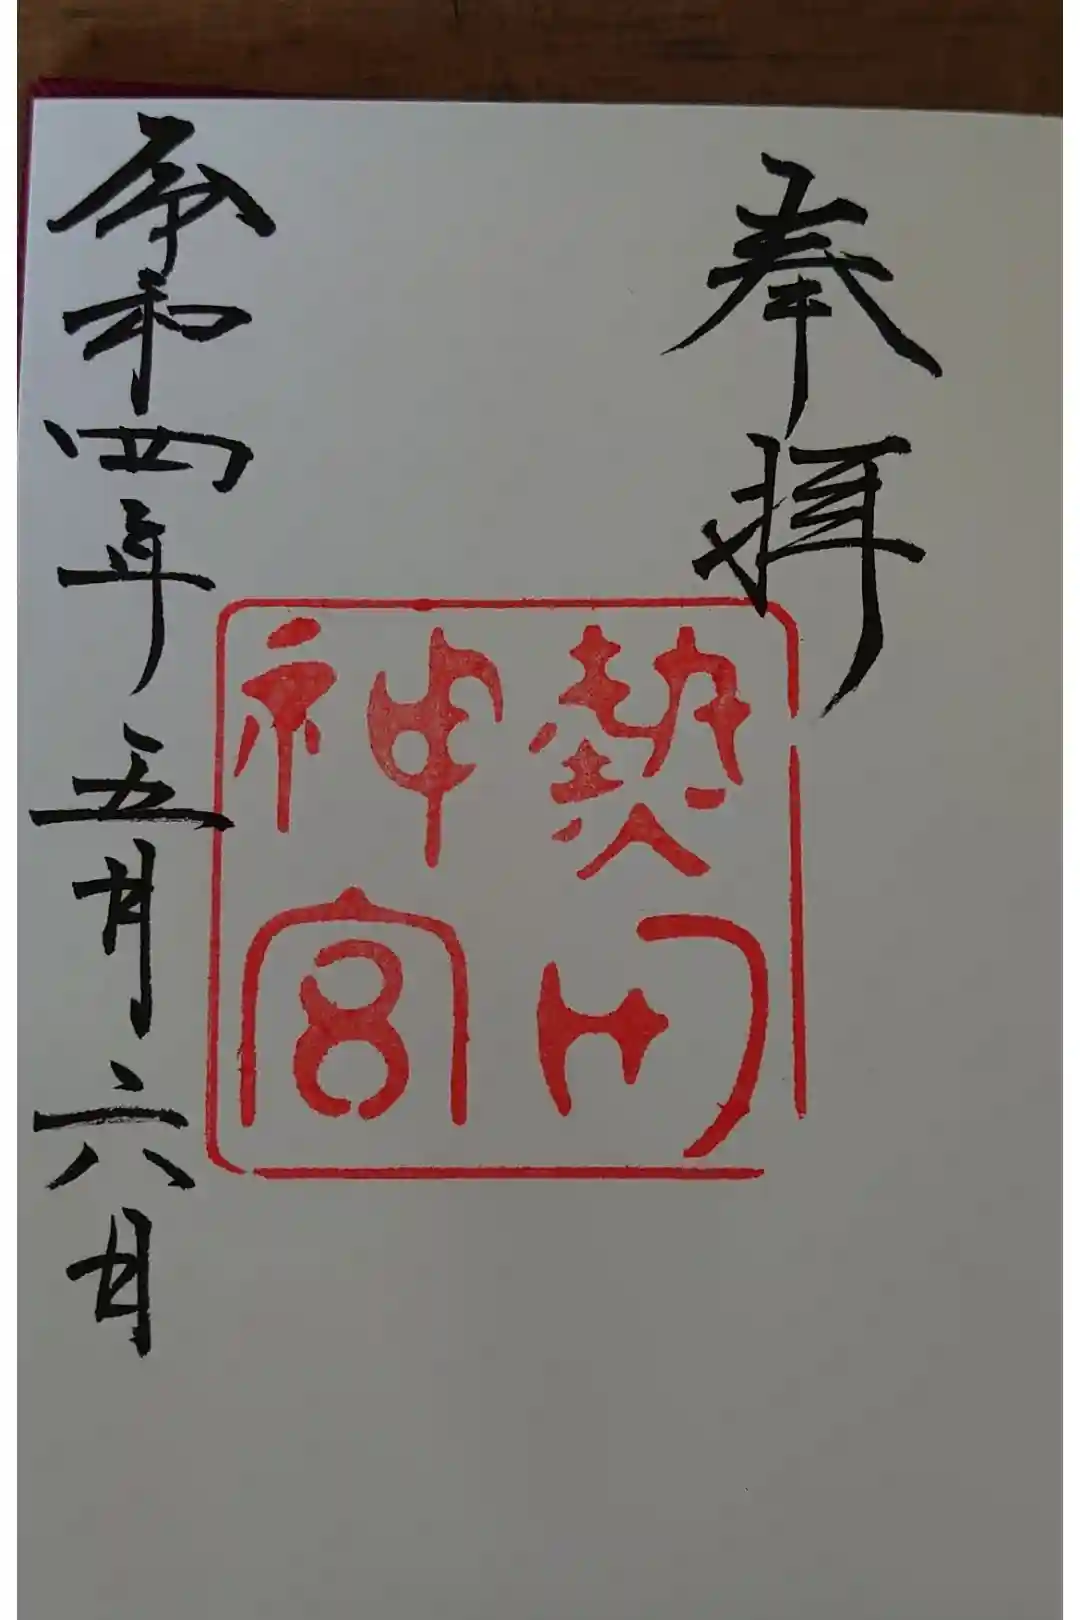 奉拝
熱田
神宮
令和四年五月六日